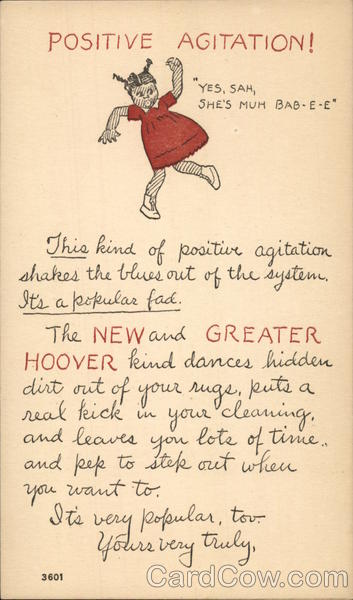 POSITIVE AGITATION!
"YES, SAH,
SHE'S MUH BAB-E-E"
This kind of positive agitation
shakes the blues out of the system.
It's a popular fad.
The NEW and GREATER
HOOVER kind dances hidden
dirt out of your rugs, puts a
real kick in your cleaning,
and leaves you lots of time,
and pep to step out when
you want to.
It's very popular, too.
Yours very truly,
3601
CardCow.com